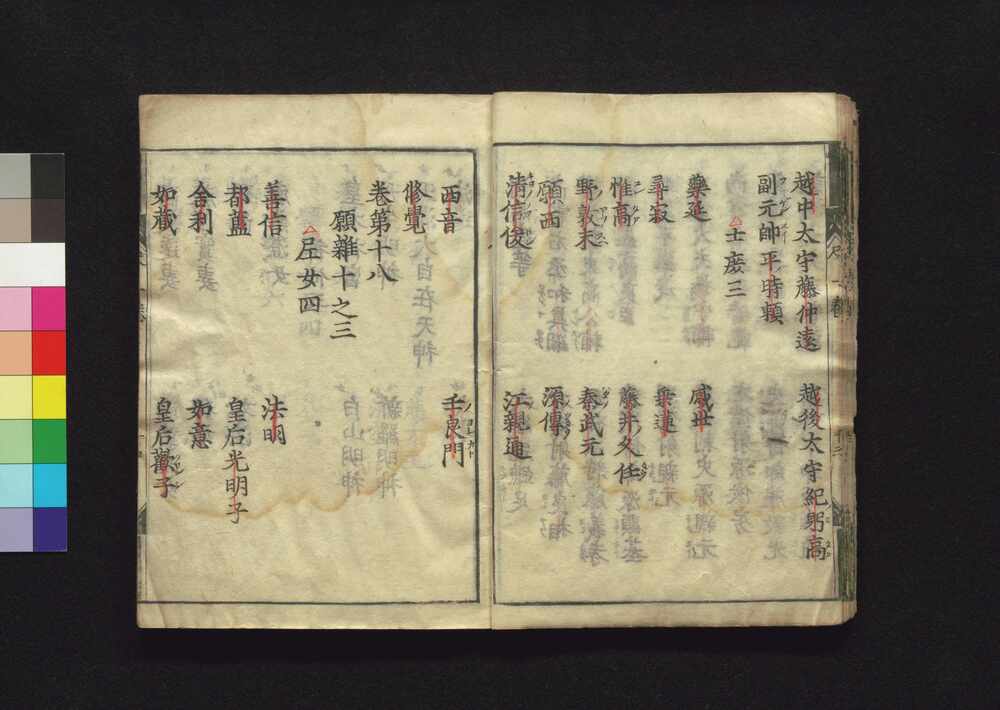 越中太守藤仲遠　越後太守紀躬高
副元帥平時頼
士庶三
藥延　感世
尋寂　乗蓮
惟高　藤井久任
野敦末　秦武元
願西　源傳
清信俊　江親通
西音　壬良門
修覺
卷第十八
願雜十之三
尼女四
善信　法明
都藍　皇后光明子
舍利　如意
如藏　皇后歡子